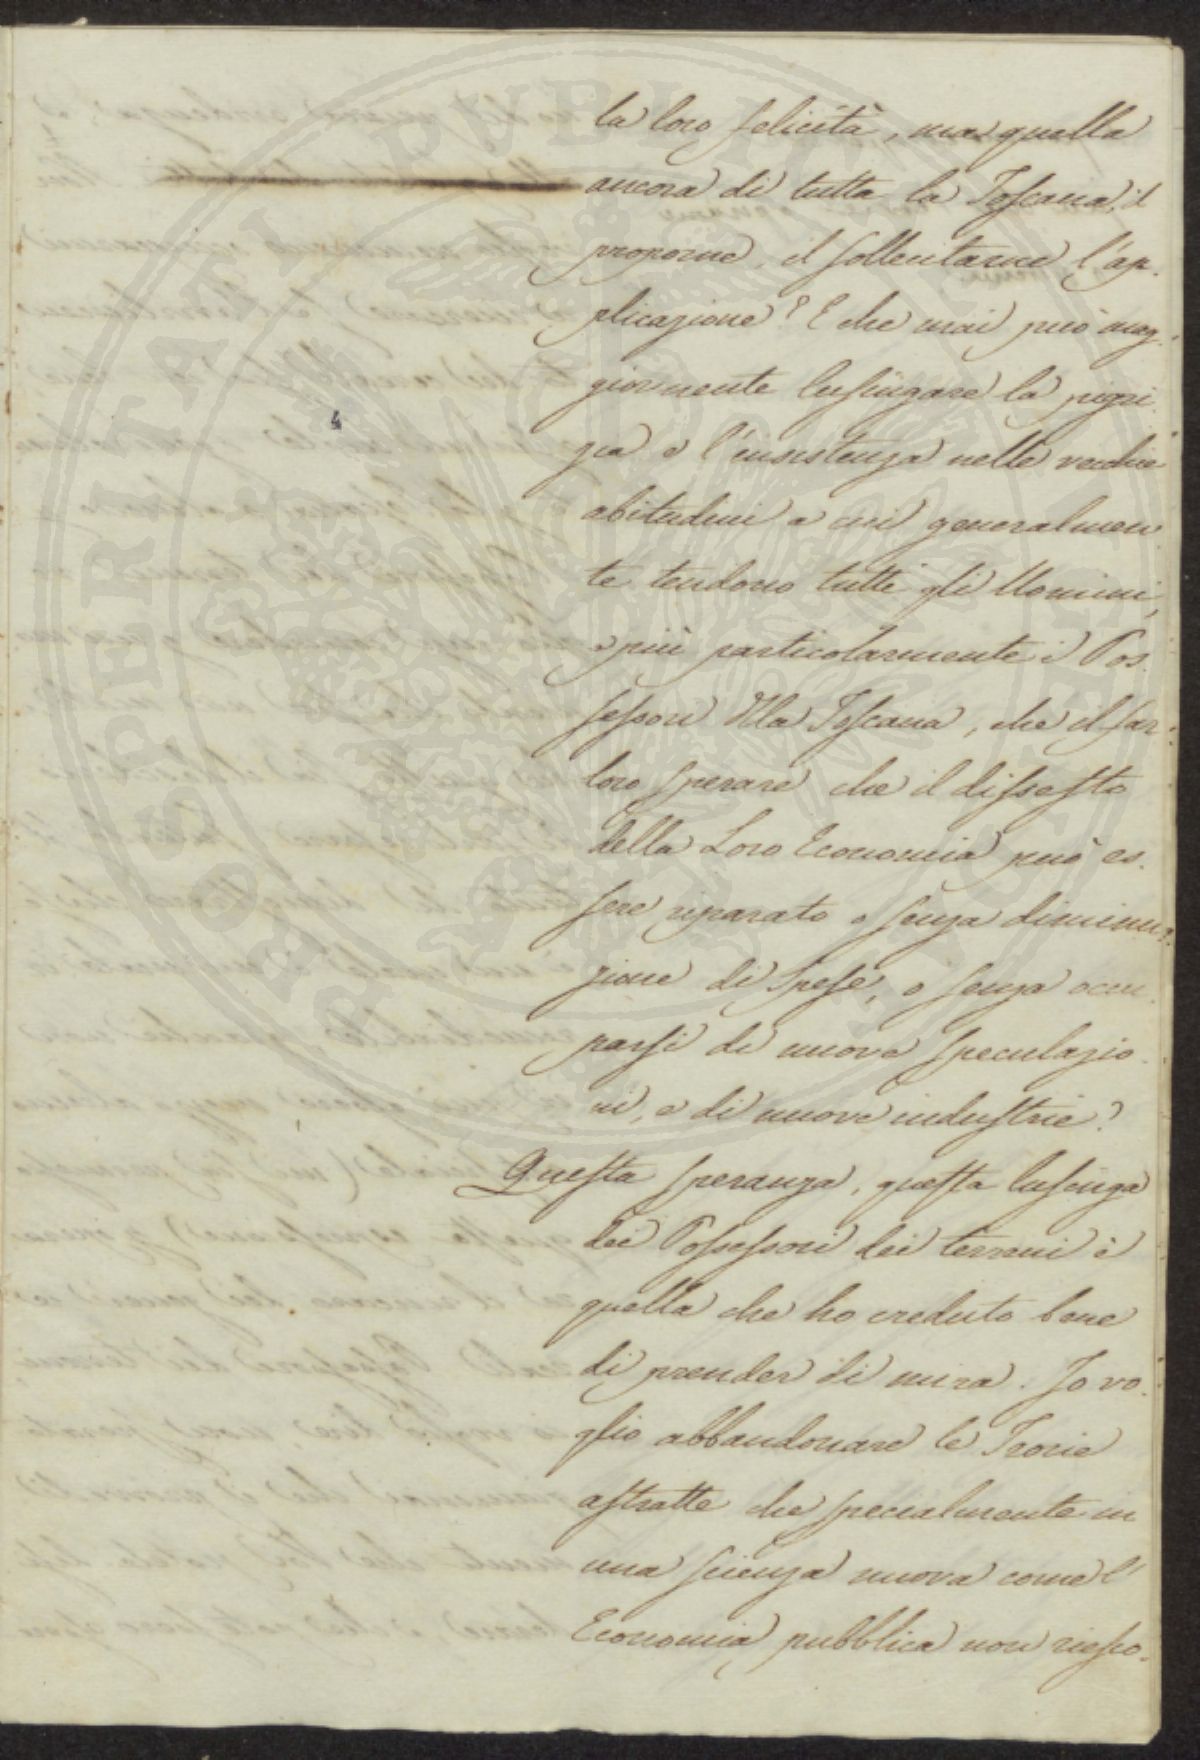 la loro felicità, ma quella
ancora di tutta la Toscana, il
proporne, il sollecitarne l'ap-
plicazione? E che mai può mag-
giormente lusingare la pigri-
zia e l'insistenza nelle vecchie
abitudini a cui generalmen-
te tendono tutti gli Uomini,
e più particolarmente i Pos-
sessori della Toscana, che il far
loro sperare che il dissesto
della Loro Economia può es-
sere riparato o senza diminu-
zione di Spese, o senza occu-
parsi di nuove speculazio-
ni, e di nuove industrie?
Questa speranza, questa lusinga
dei Possessori dei terreni è
quella che ho creduto bene
di prender di mira. Io vo-
glio abbandonare le Teorie
astratte che specialmente in
una scienza nuova come l'
Economia pubblica non riesco-
4
PROSPERITATI PVBLICAE